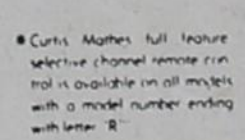 • Curtis Mathes full feature
selective channel remote con
trol is available on all models
with a model number ending
with letter "R"